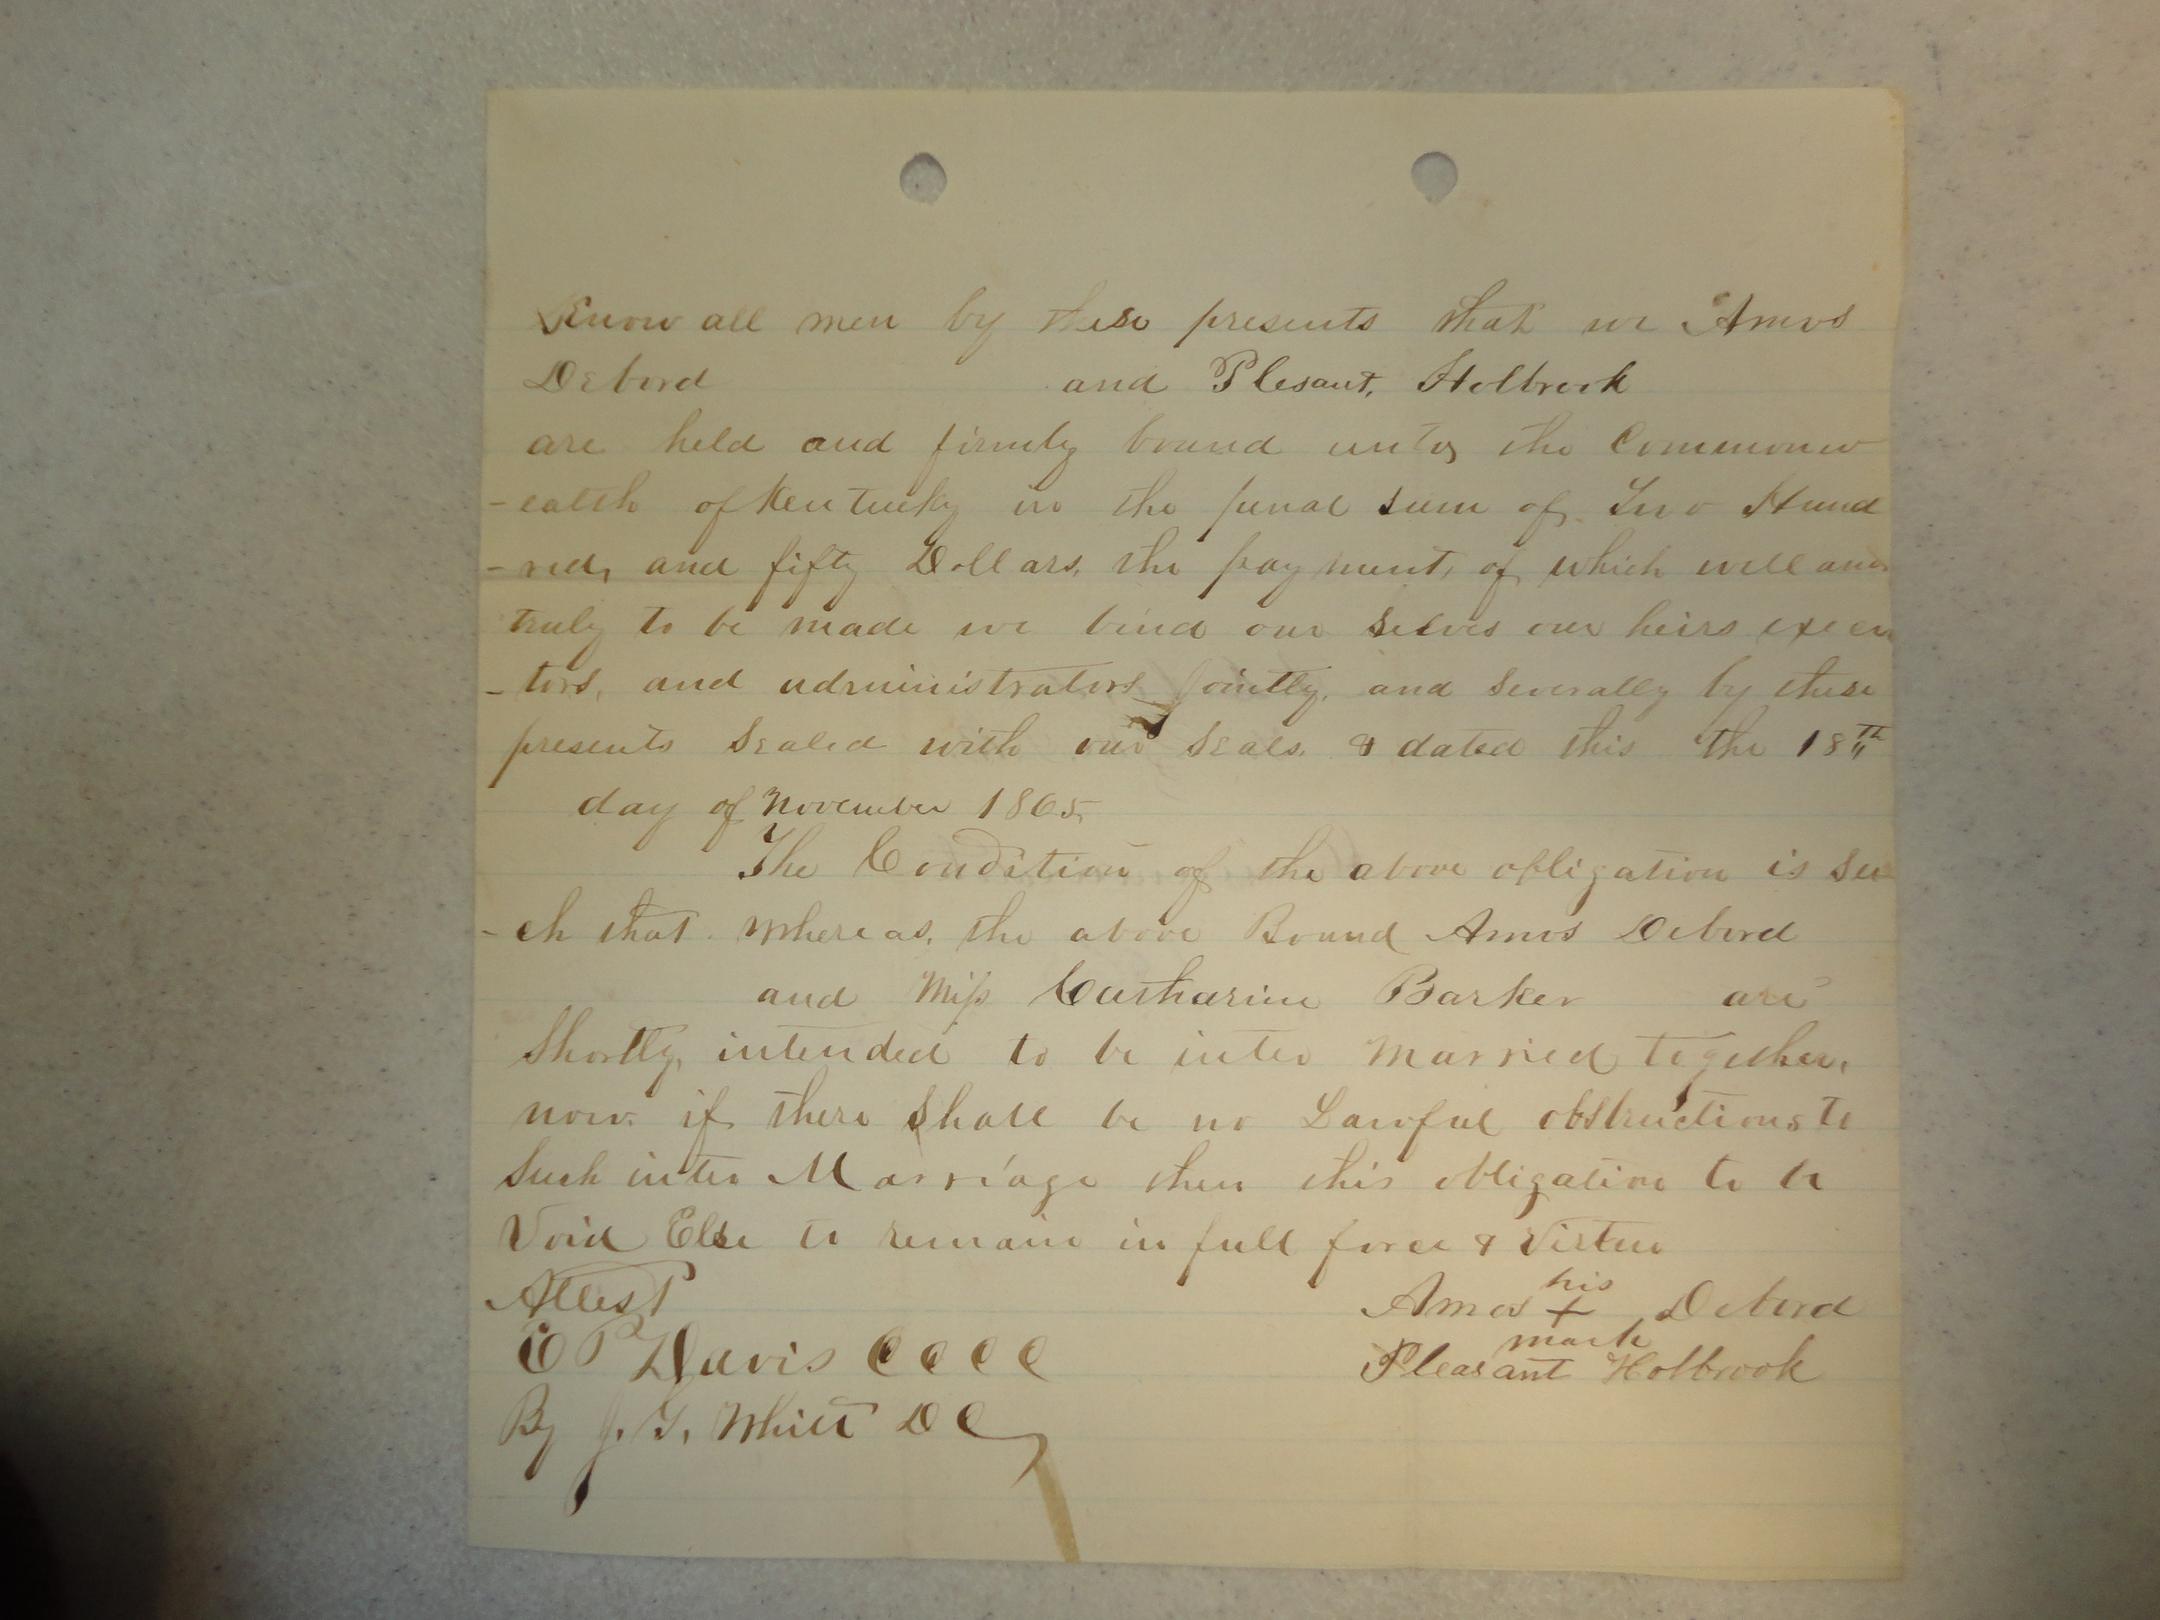 Know all men by these presents that we Amos
Debord and Plesant, Holbrook
are held and firmly bound unto the Commonw
-ealth of Kentucky in the penal sum of Two Hund
-red, and fifty Dollars, the payment, of which well and
truly to be made we bind our selves our heirs execu
-tors, and administrators Jointly, and severally by these
presents sealed with our seals. & dated this the 18th
day of November 1865,
The Condition of the above obligation is Su
-ch that. Whereas, the above Bound Amos Debord
and Miss Catharine Barker are
Shortly, intended to be inter Married together,
now. if there Shall be no Lawful obstructions to
Such inter Marriage then this obligation to be
Void Else to remain in full force & Virtue
Attest
E P Davis C C C C
By J. T. Whitt D C
his
Amos + Debord
mark
Pleasant Holbrook